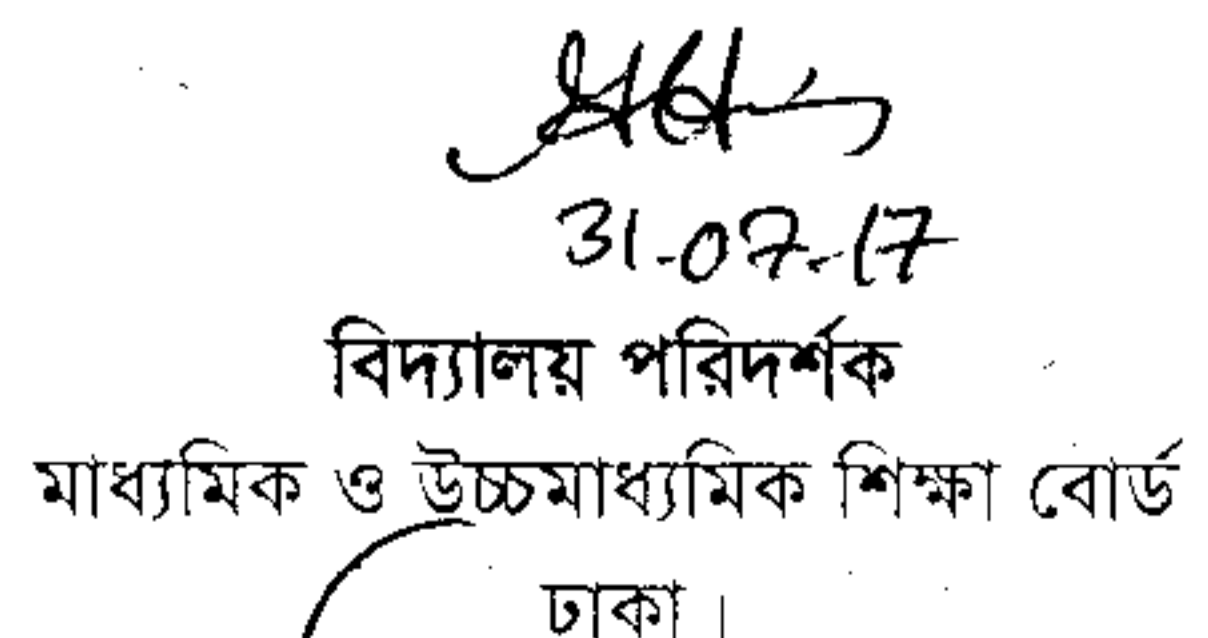 31-07-17
বিদ্যালয় পরিদর্শক
মাধ্যমিক ও উচ্চমাধ্যমিক শিক্ষা বোর্ড
ঢাকা।